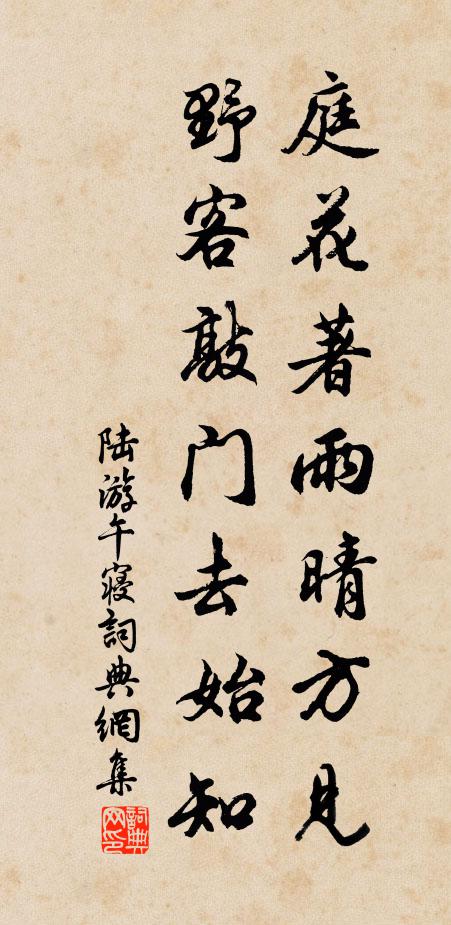 庭花著雨晴方見
野客敲门去始知
陆游午寢詞典網集
詞典网印